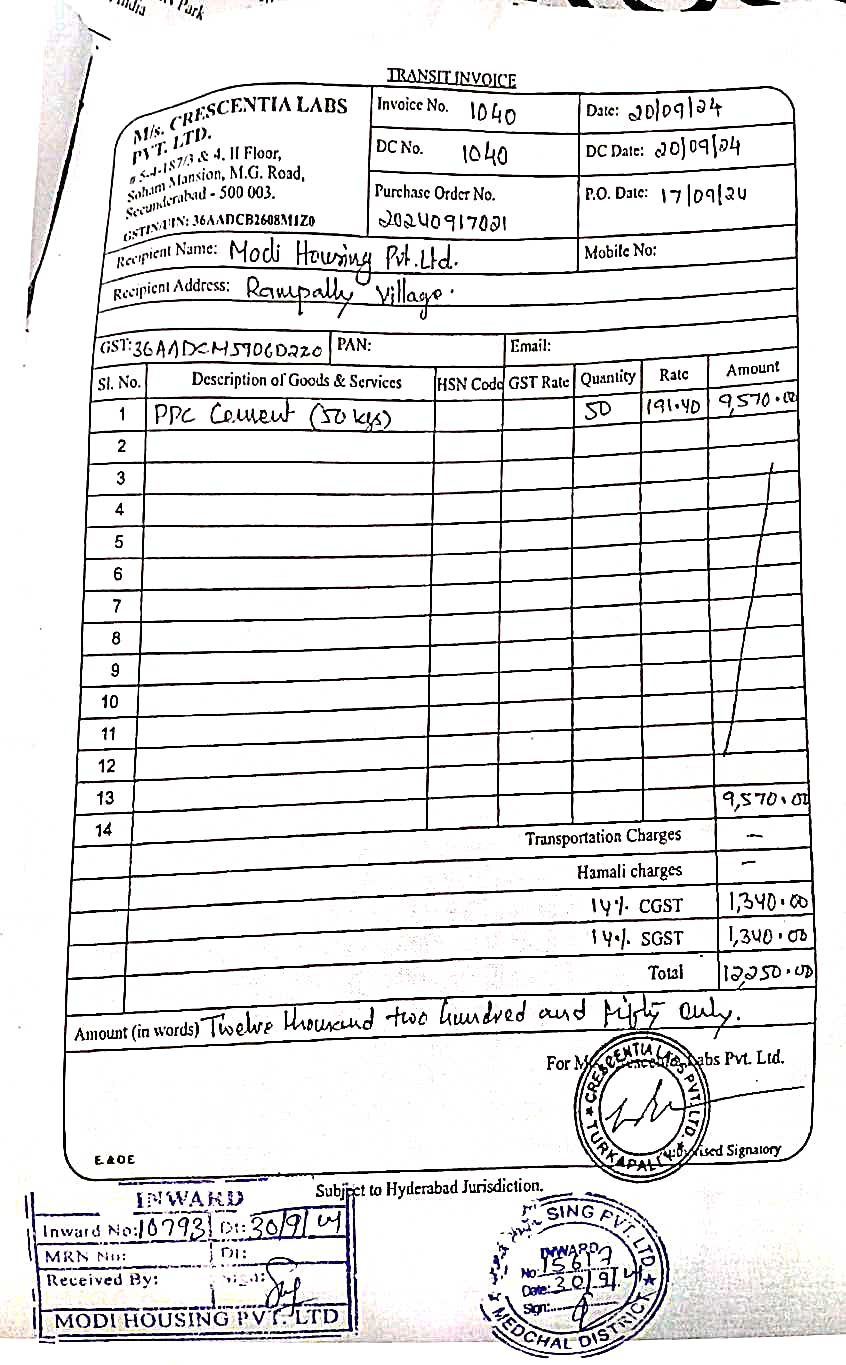 India
Park
TRANSIT INVOICE
M/s. CRESCENTIA LABS
PVT. LTD.
# 5-4-187/3 & 4, II Floor,
Soham Mansion, M.G. Road,
Secunderabad - 500 003.
GSTIN/UIN: 36AADCB2608M1Z0
Invoice No. 1040
Date: 20/09/24
DC No. 1040
DC Date: 20/09/24
Purchase Order No.
20240917021
P.O. Date: 17/09/24
Recipient Name: Modi Housing Pvt. Ltd.
Mobile No:
Recipient Address: Rampally Village.
GST: 36AADCM5906D2Z0 PAN: Email:
Sl. No. Description of Goods & Services HSN Code GST Rate Quantity Rate Amount
1 PPC Cement (50 kgs) 50 191.40 9,570.00
2
3
4
5
6
7
8
9
10
11
12
13 9,570.00
14
Transportation Charges –
Hamali charges –
14% CGST 1,340.00
14% SGST 1,340.00
Total 12,250.00
Amount (in words) Twelve thousand two hundred and fifty only.
For M/s. Crescentia Labs Pvt. Ltd.
CRESCENTIA LABS PVT. LTD.
TURKAPALLY
Authorised Signatory
E & O E
Subject to Hyderabad Jurisdiction.
INWARD
Inward No: 10793 Dt: 30/9/24
MRN No: Dt:
Received By: Sign:
MODI HOUSING PVT. LTD
HOUSING PVT. LTD
INWARD
No: 15617
Date: 30/9/24
Sign:
MEDCHAL DISTRICT